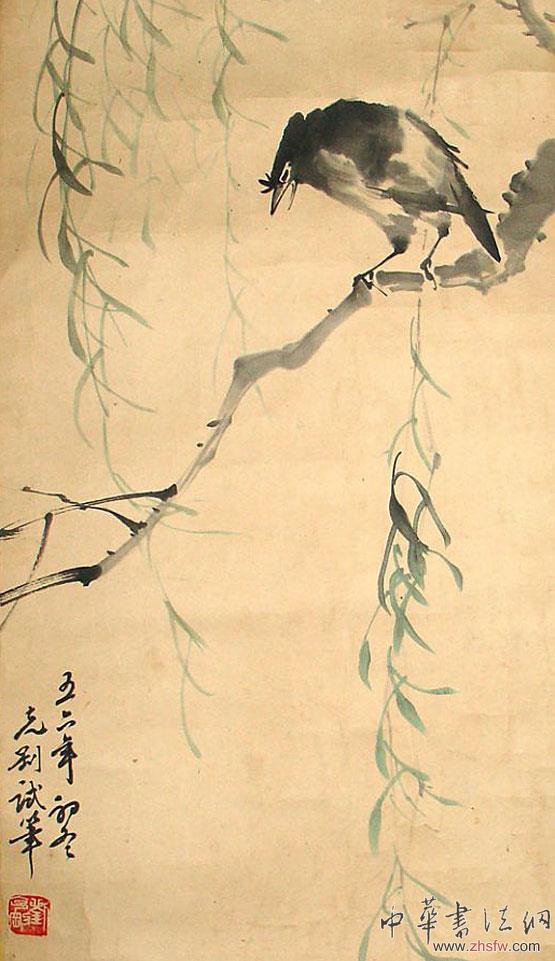 五六年初冬
試筆
中華書法網
www.zhsfw.com